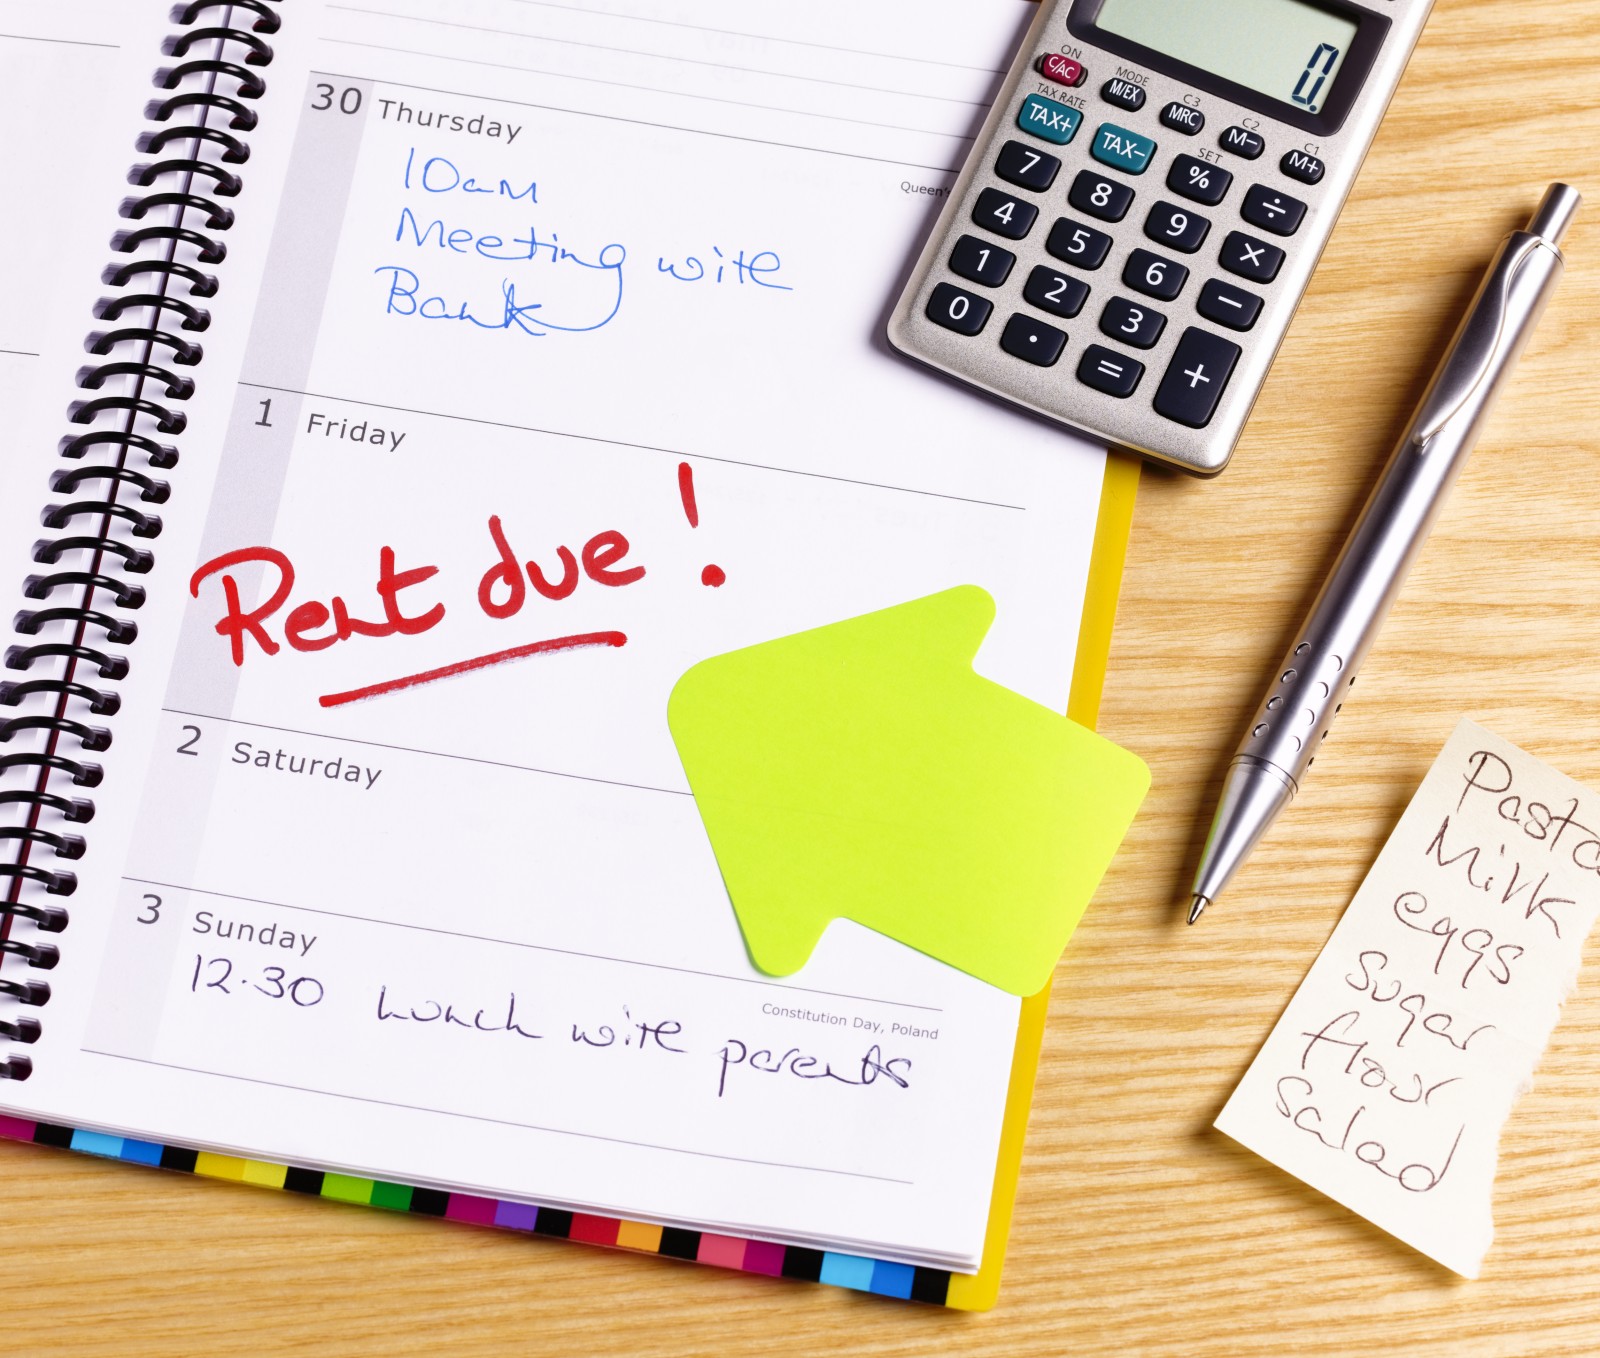 30 Thursday
Queen's
10am
Meeting with
Bank
1 Friday
Rent due!
2 Saturday
3 Sunday
Constitution Day, Poland
12.30 Lunch with parents
0.
ON
C/AC
MODE
M/EX
C3
MRC
C2
M-
C1
M+
TAX RATE
TAX+
TAX-
SET
%
÷
7
8
9
×
4
5
6
−
1
2
3
+
0
.
=
Pasta
Milk
eggs
sugar
flour
salad